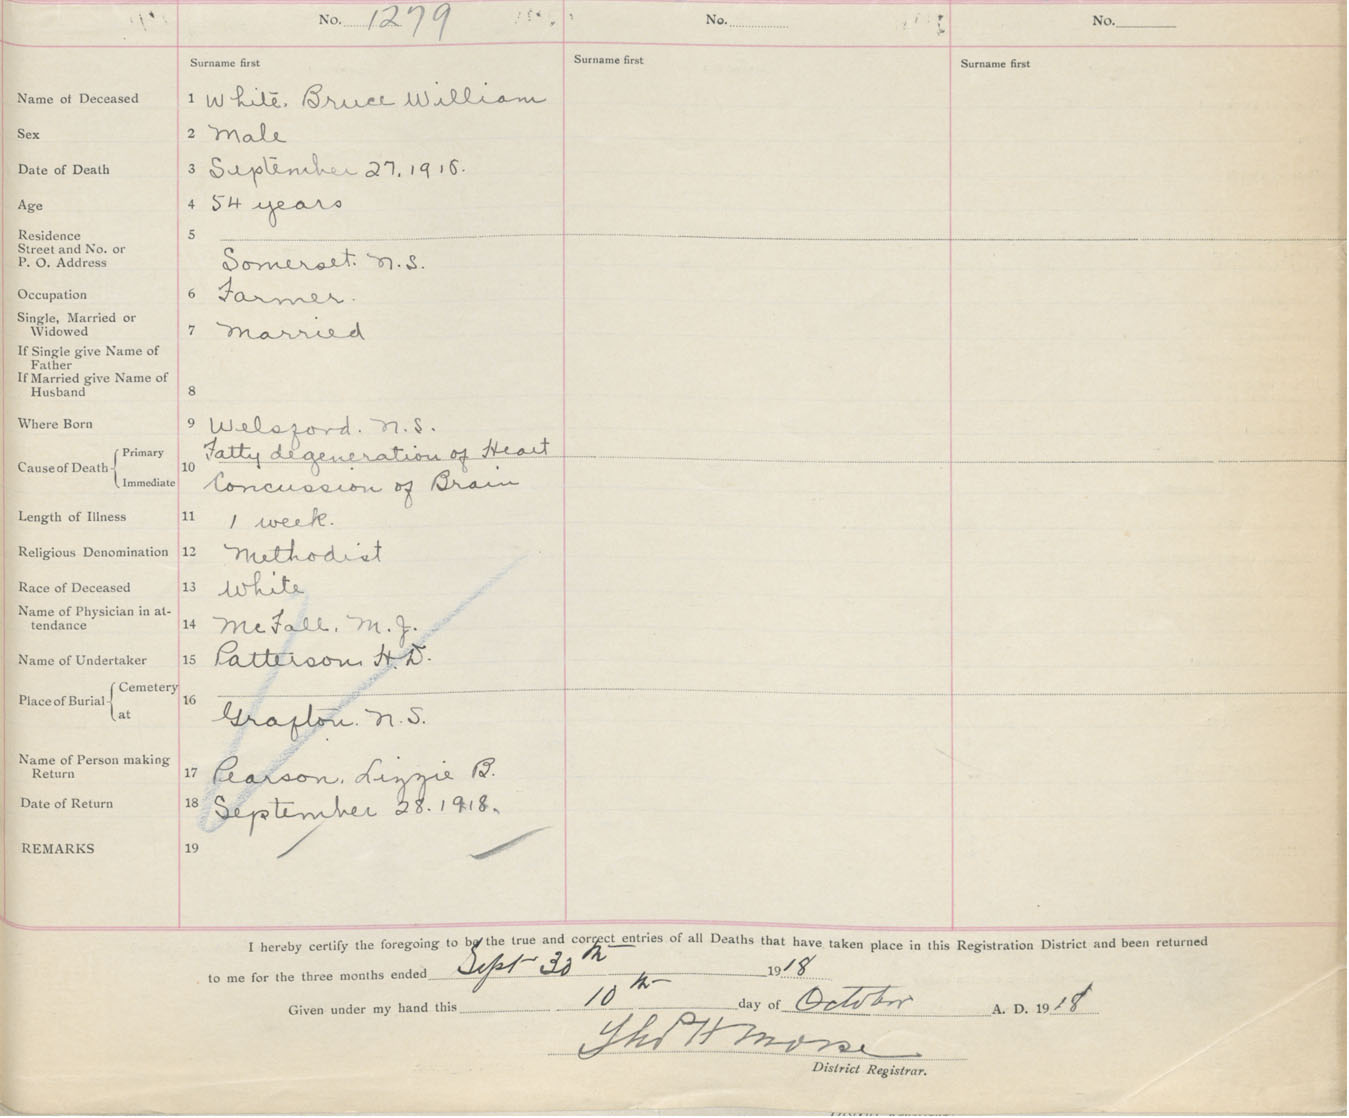 No. 1279 No. No.
Surname first Surname first Surname first
Name of Deceased 1 White, Bruce William
Sex 2 Male
Date of Death 3 September 27, 1918.
Age 4 54 years
Residence 5
Street and No. or
P. O. Address Somerset. N.S.
Occupation 6 Farmer.
Single, Married or
Widowed 7 Married
If Single give Name of
Father
If Married give Name of
Husband 8
Where Born 9 Welsford. N.S.
Cause of Death 10 Primary Fatty degeneration of Heart
Immediate Concussion of Brain
Length of Illness 11 1 week.
Religious Denomination 12 Methodist
Race of Deceased 13 White
Name of Physician in at-
tendance 14 McFall, M.J.
Name of Undertaker 15 Patterson, H.D.
Place of Burial 16 Cemetery
at Grafton. N.S.
Name of Person making
Return 17 Pearson, Lizzie B.
Date of Return 18 September 28. 1918.
REMARKS 19
I hereby certify the foregoing to be the true and correct entries of all Deaths that have taken place in this Registration District and been returned
to me for the three months ended Sept 30th 1918
Given under my hand this 10th day of October A. D. 1918
Thos H Morse
District Registrar.